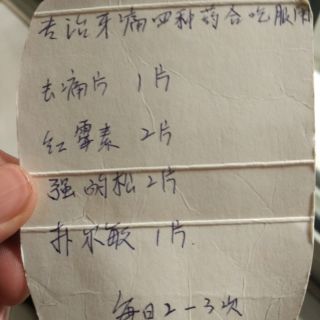 专治牙痛四种药合吃服用
去痛片 1片
红霉素 2片
强的松 2片
扑尔敏 1片.
每日2-3次